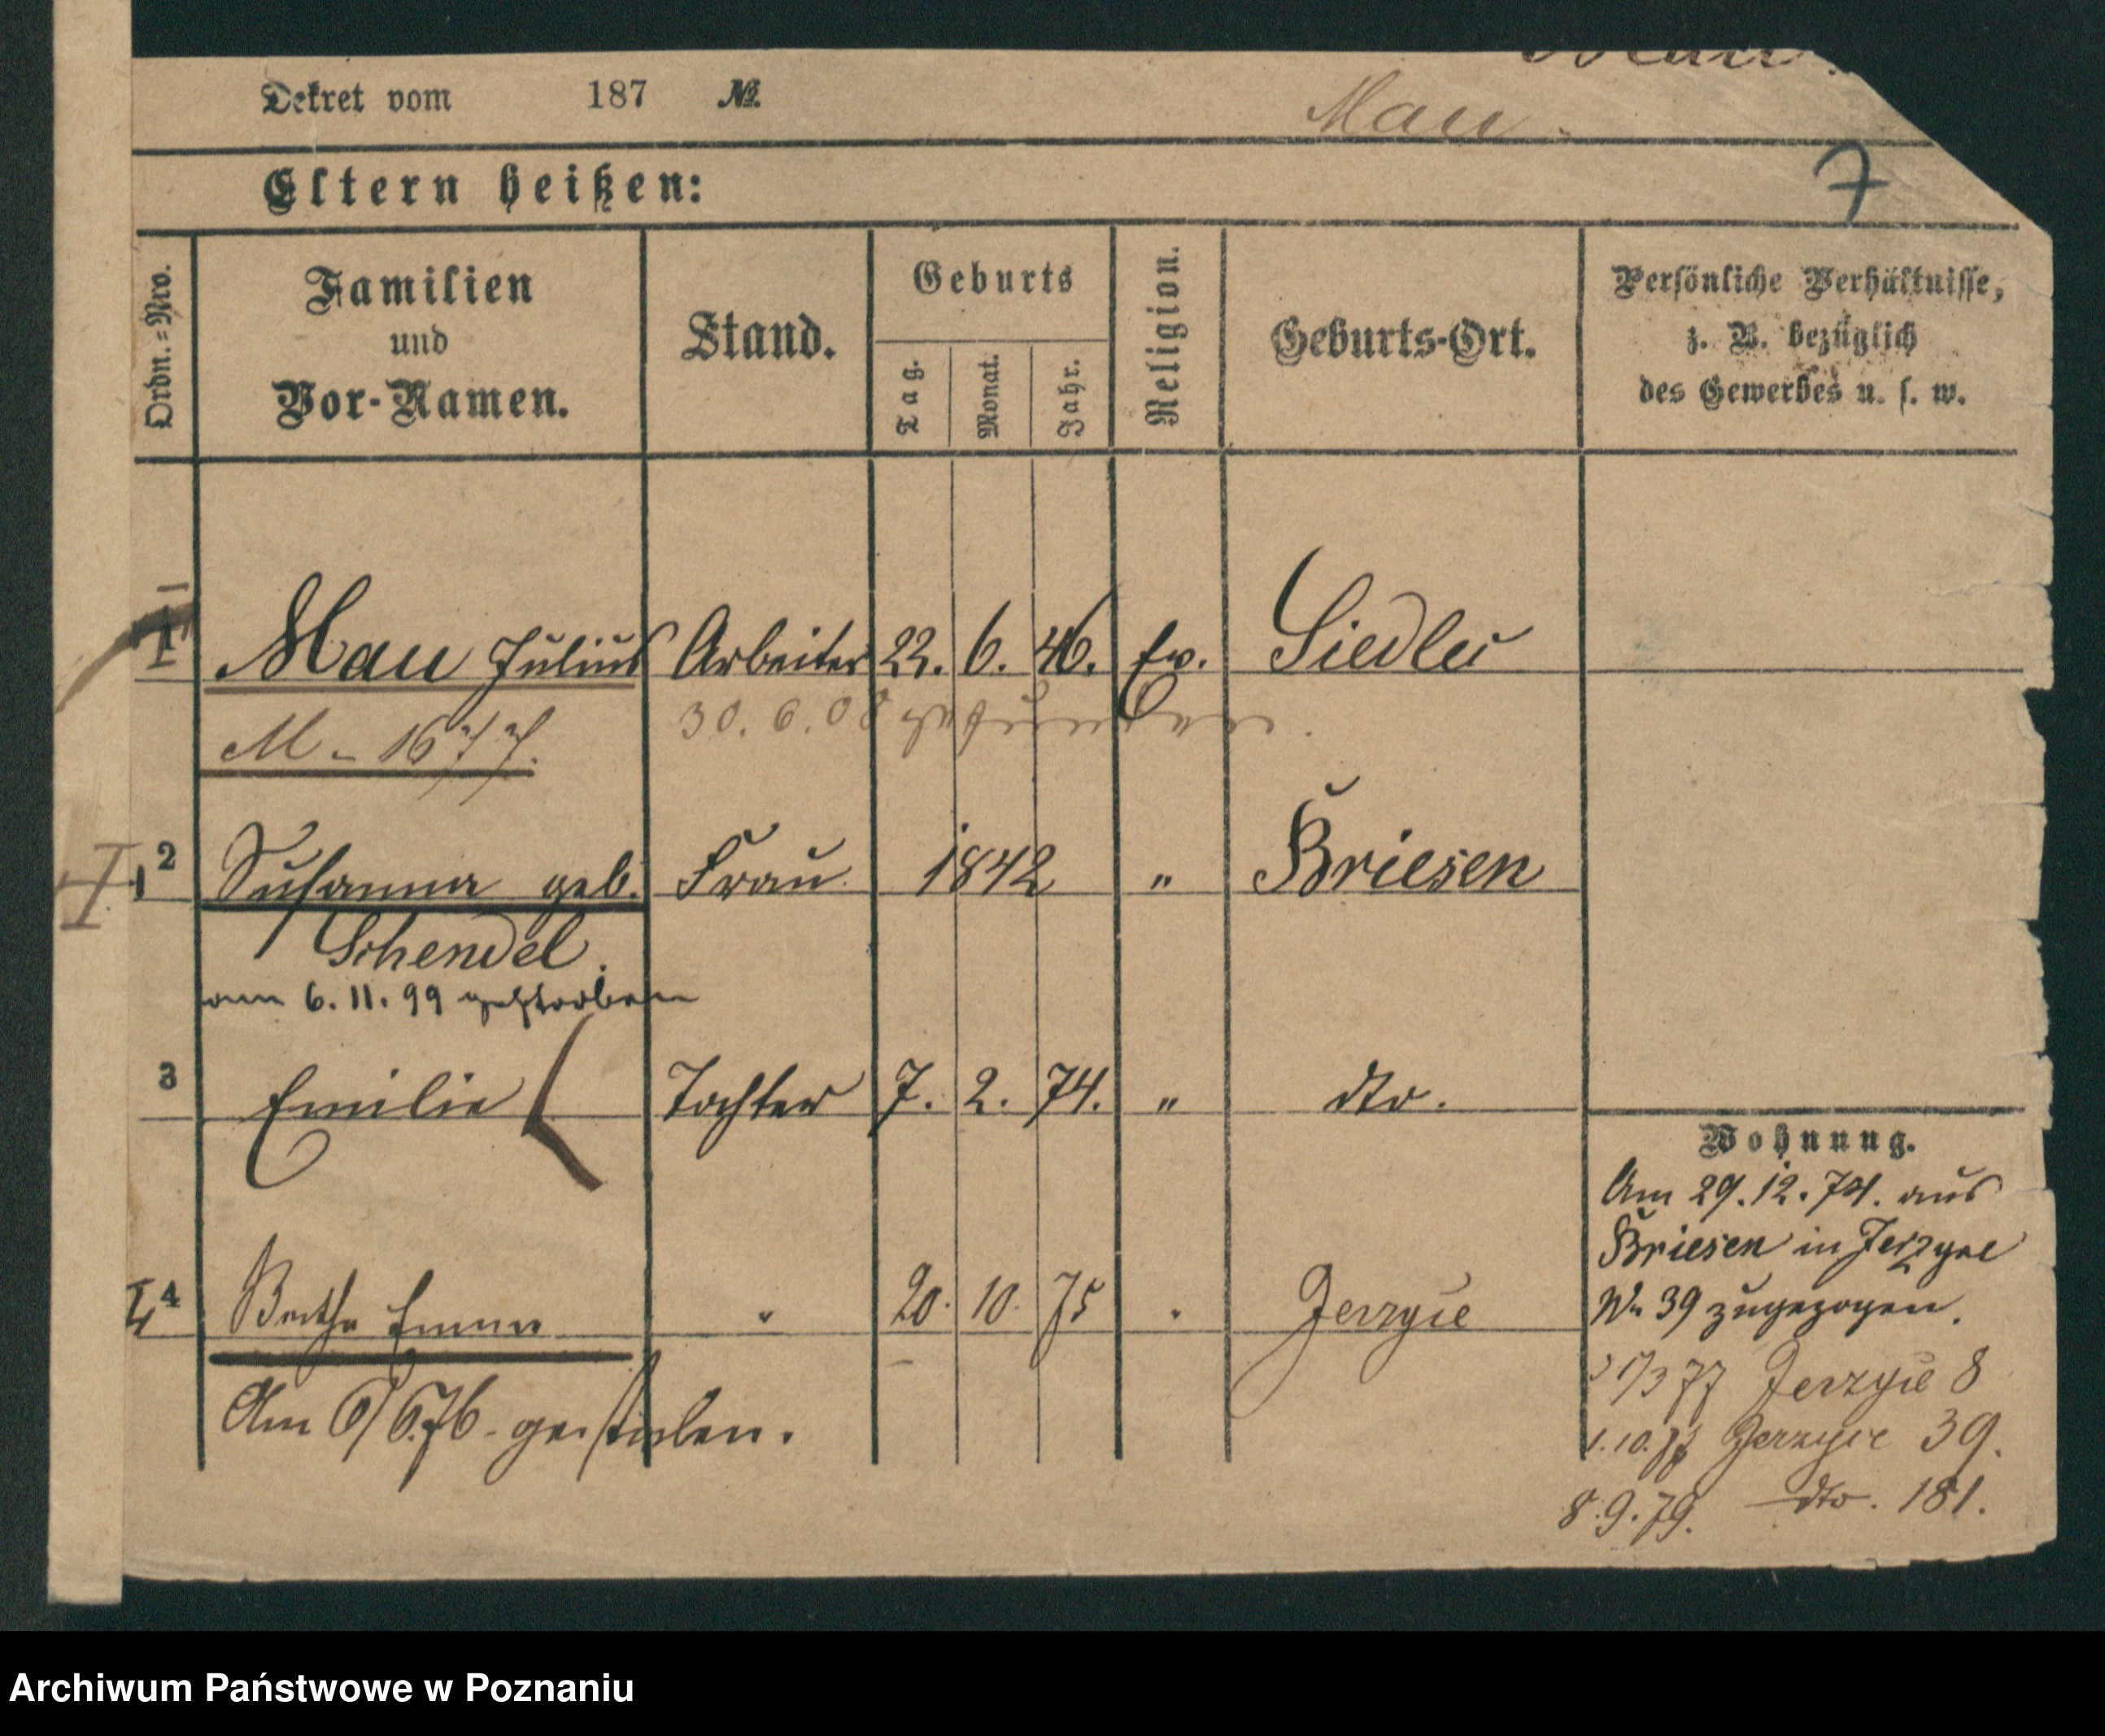 Dekret vom 187 №
Mau.
7
Eltern heißen:
Ordn.=Nro.
Familien
und
Vor-Namen.
Stand.
Geburts
Tag.
Monat.
Jahr.
Religion.
Geburts-Ort.
Persönliche Verhältnisse,
z. B. bezüglich
des Gewerbes u. s. w.
1 Mau Julius Arbeiter 22. 6. 46. Ev. Siedlec
30. 6. 08
M - 1677.
2 Susanna geb. Frau 1842 " Briesen
Schendel.
am 6. 11. 99 gestorben
3 Emilie Tochter 7. 2. 74. " dto.
Wohnung.
Am 29. 12. 74. aus
Briesen in Jerzyce
No 39 zugezogen.
4 Bertha Emma " 20. 10. 75 " Jerzyce
Am 6/6.76. gestorben.
1/3 77 Jerzyce 8
1. 10. 77 Jerzyce 39.
8. 9. 79. dto. 181.
Archiwum Państwowe w Poznaniu